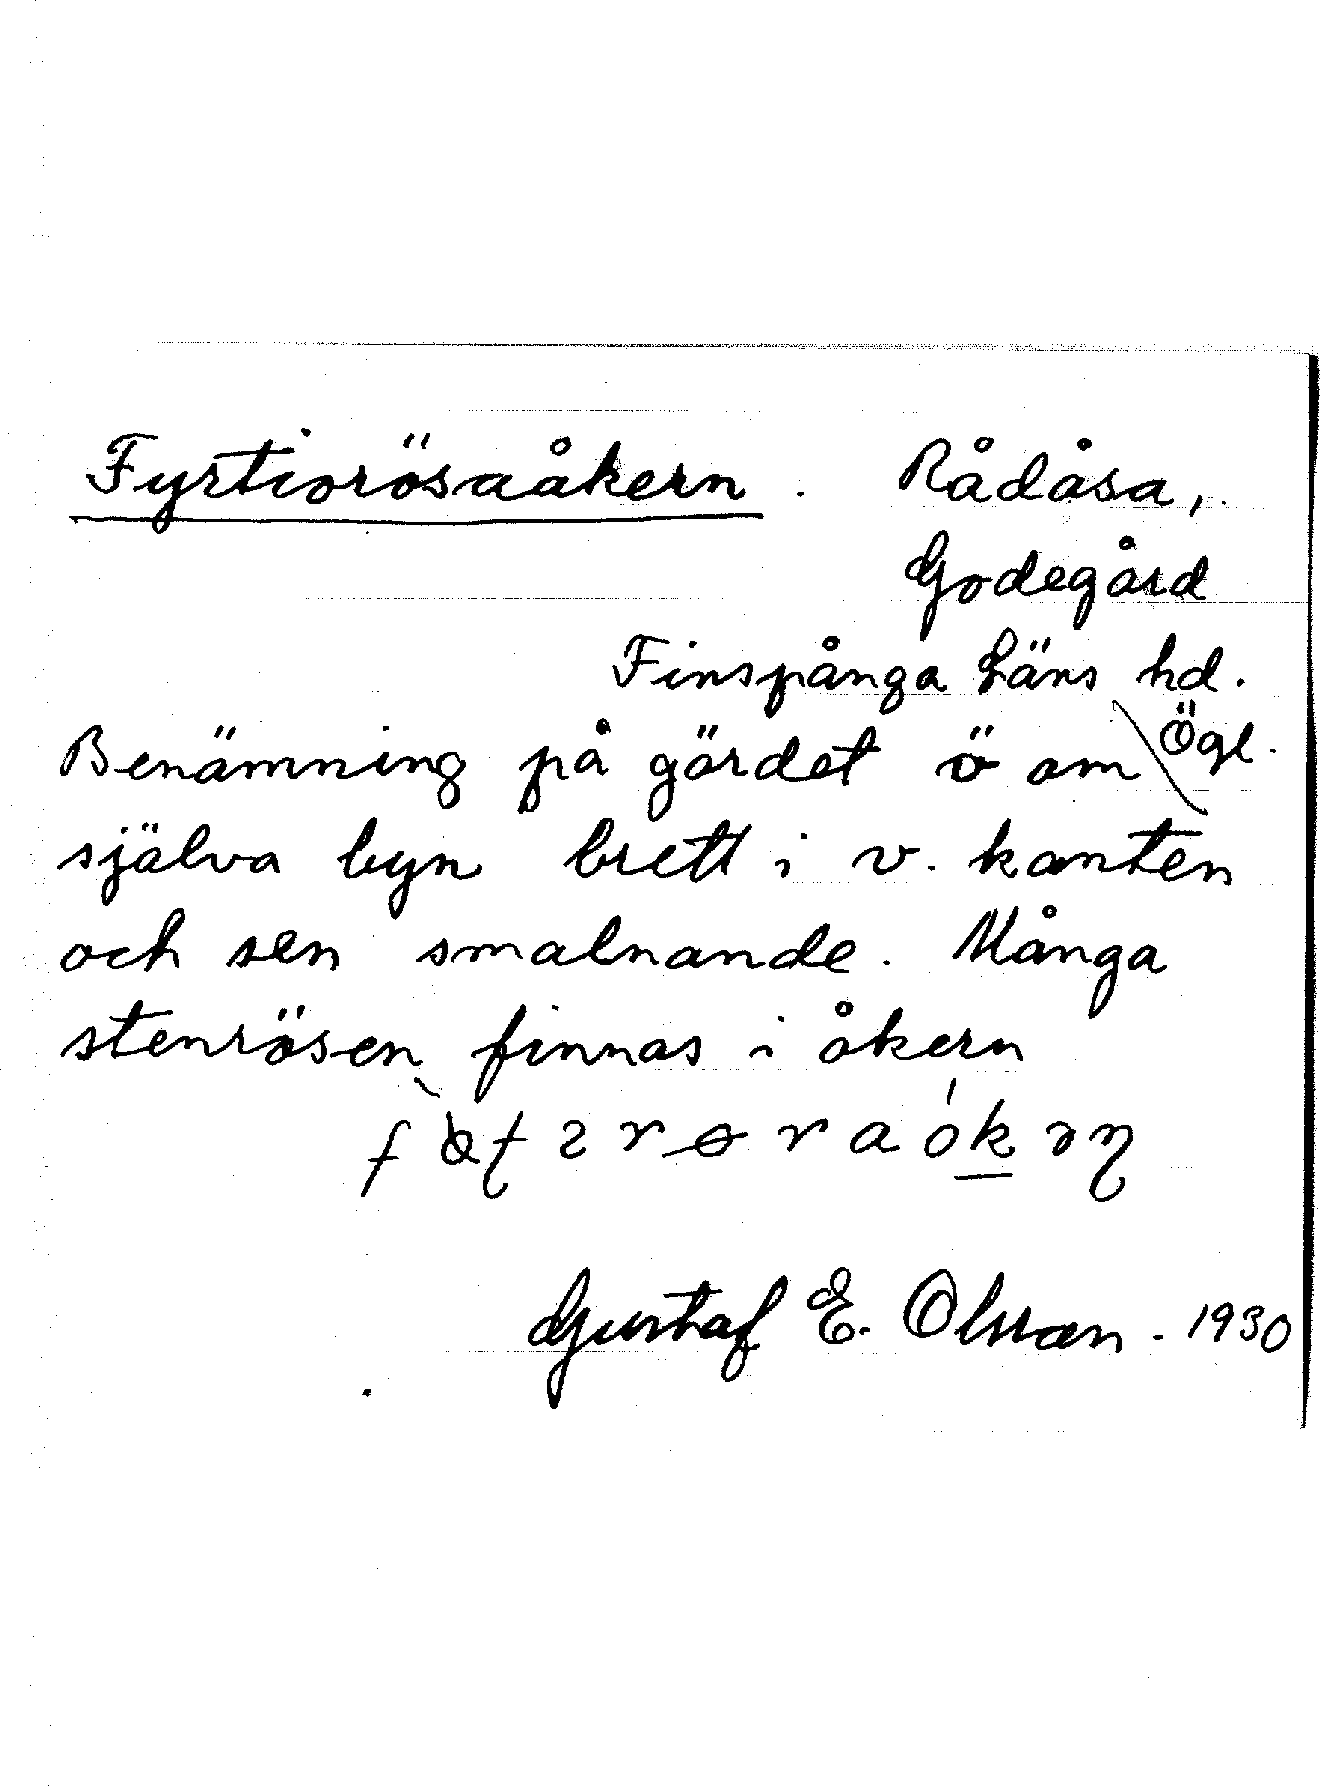 Fyrtiorösaåkern. Rådåsa,
Godegård
Finspånga Läns hd.
Ögl.
Benämning på gärdet ö om
själva byn brett i v. kanten
och sen smalnande. Många
stenrösen finnas i åkern
Gustaf E. Olsson. 1930